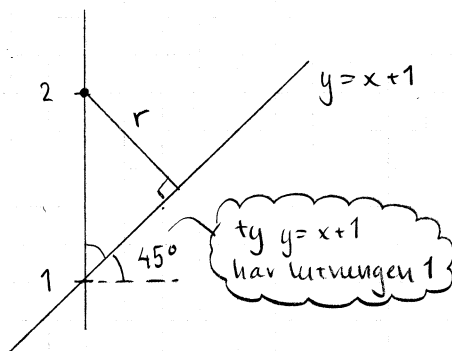 2
r
y=x+1
1
45°
ty y=x+1
har lutningen 1